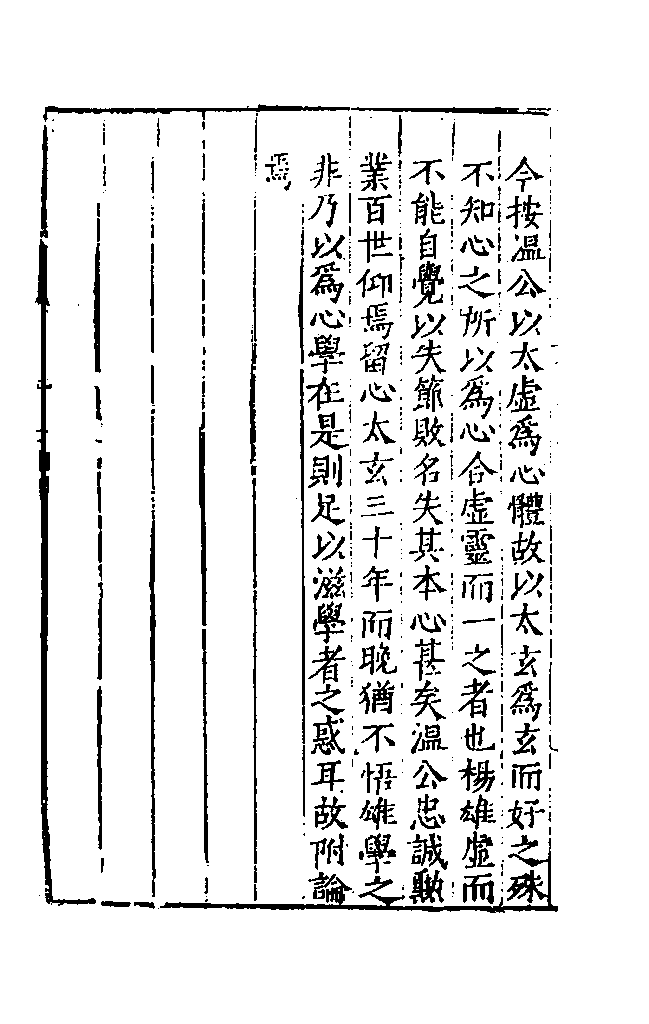 今按温公以太虛爲心體故以太玄爲玄而好之殊
不知心之所以爲心合虛靈而一之者也楊雄虛而
不能自覺以失節敗名失其本心甚矣温公忠誠勲
業百世仰焉留心太玄三十年而晚猶不悟雄學之
非乃以爲心學在是則足以滋學者之惑耳故附論
焉